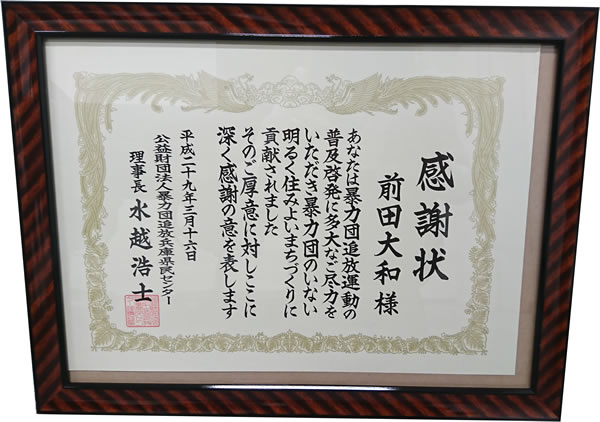 感謝状
前田大和様
あなたは暴力団追放運動の
普及啓発に多大なご尽力を
いただき暴力団のいない
明るく住みよいまちづくりに
貢献されました
そのご厚意に対しここに
深く感謝の意を表します
平成二十九年三月十六日
公益財団法人暴力団追放兵庫県民センター
理事長 水越浩士